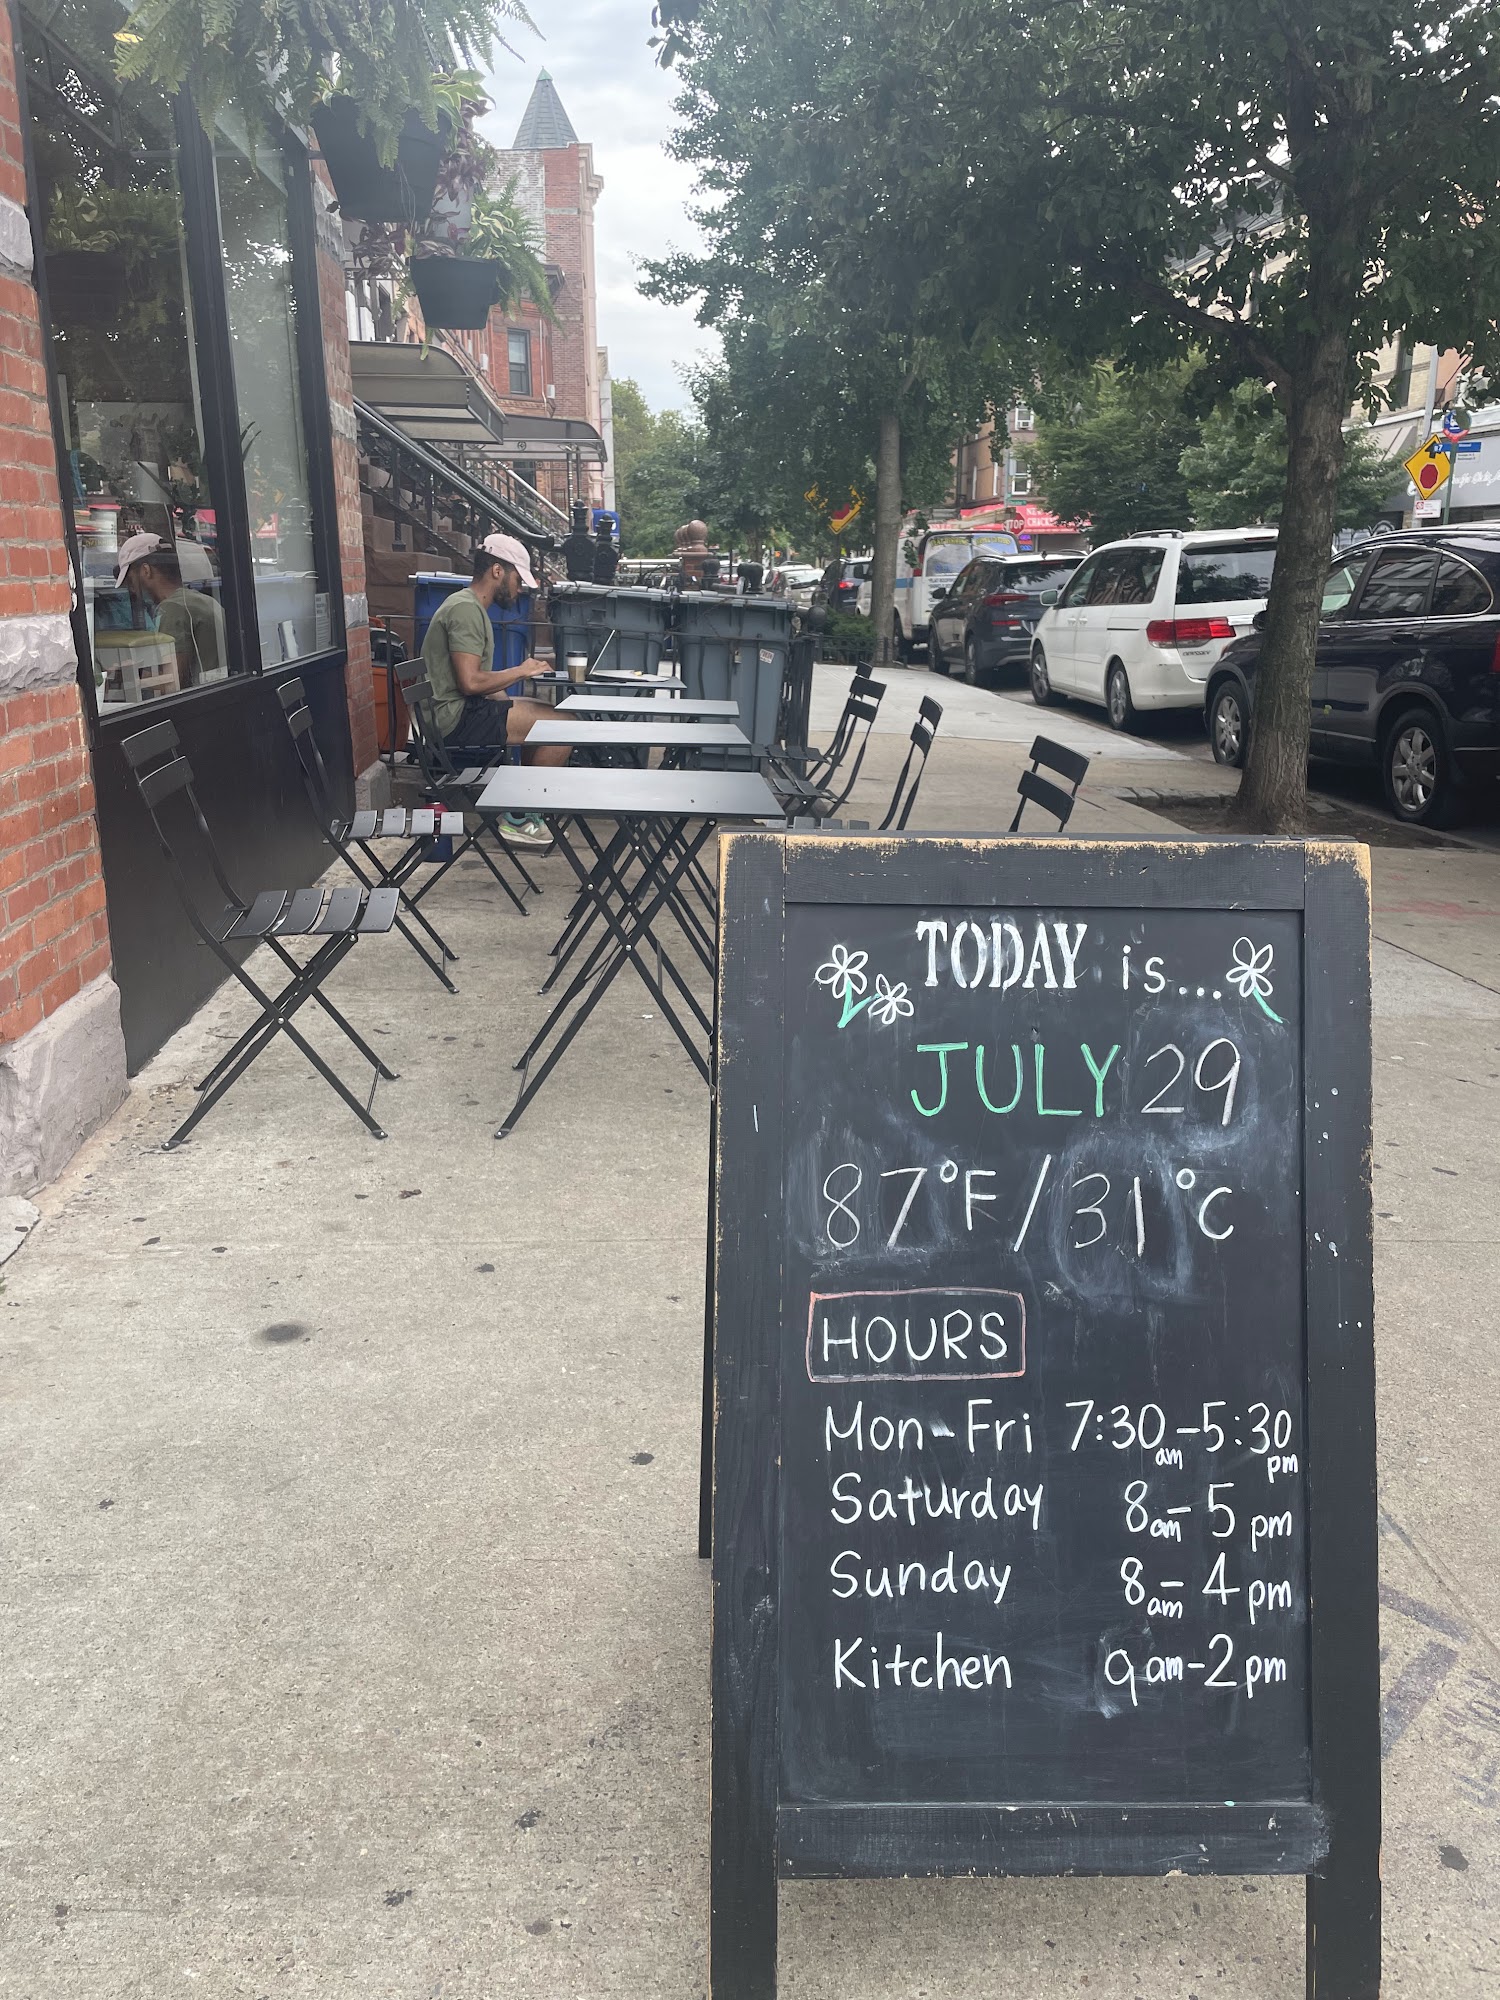 TODAY is...
JULY 29
87°F/31°C
HOURS
Mon-Fri 7:30am-5:30pm
Saturday 8am-5pm
Sunday 8am-4pm
Kitchen 9am-2pm